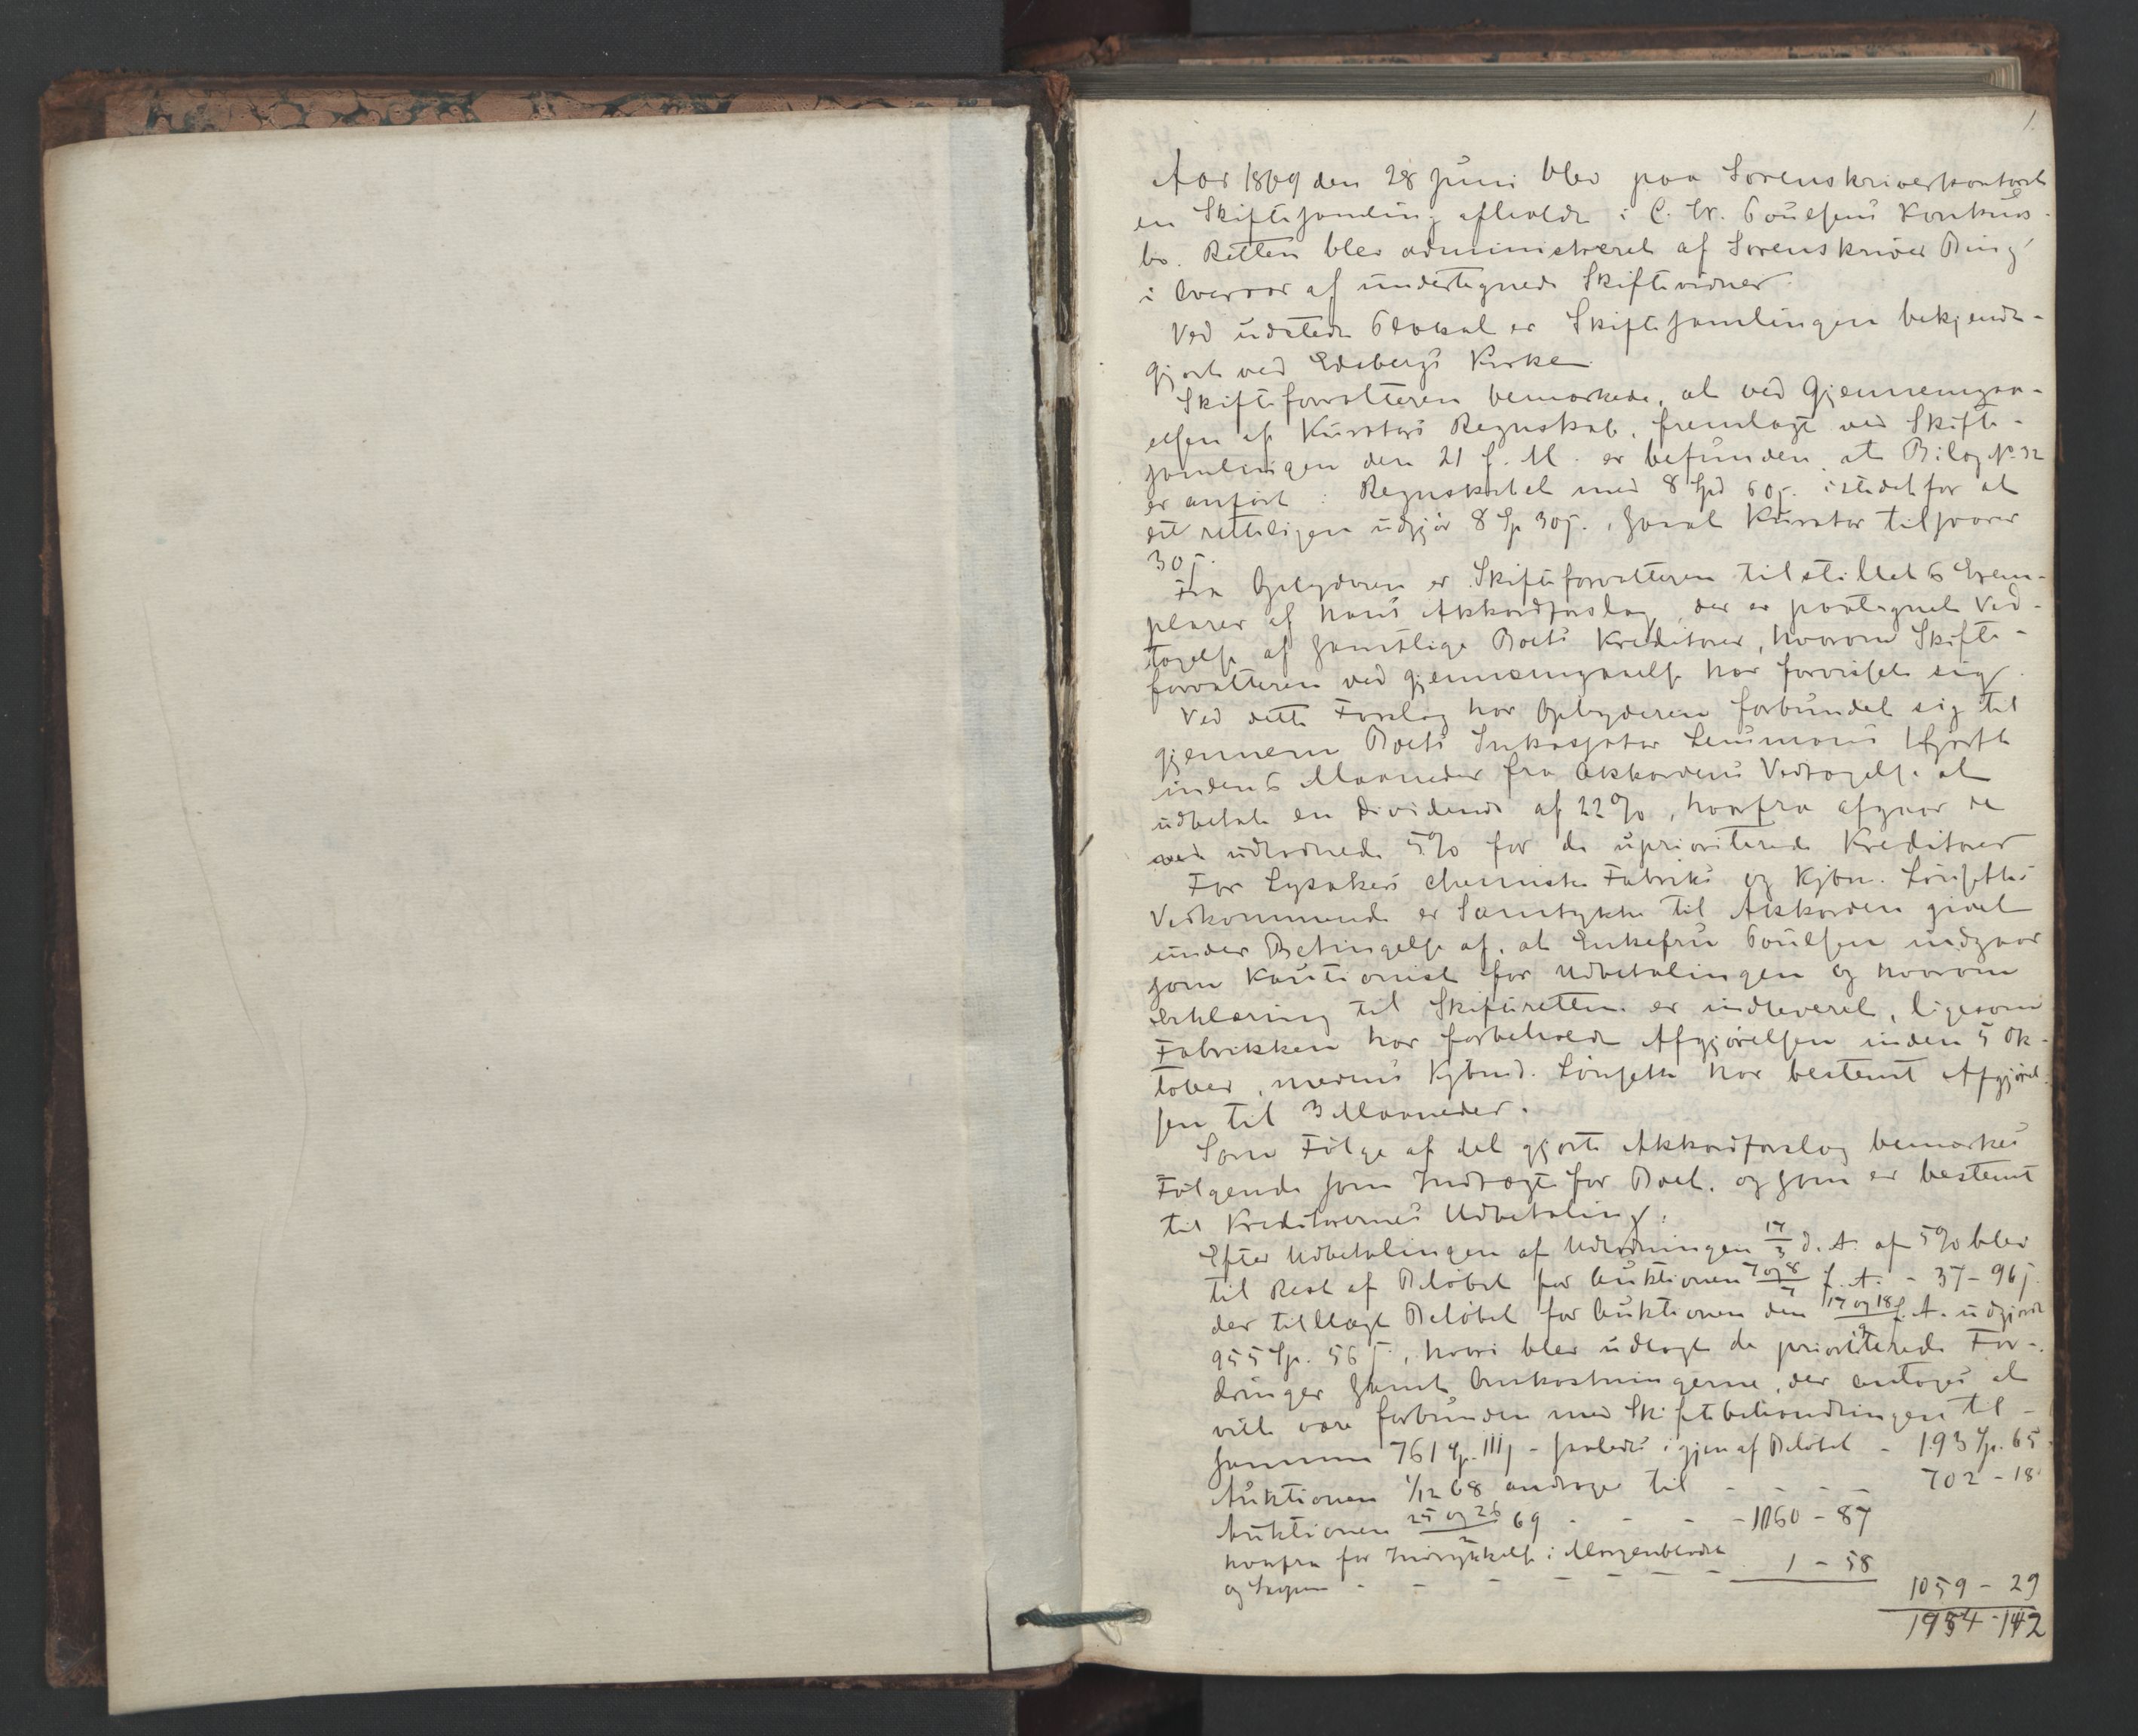 1.
Aar 1869 den 28 Juni blev paa Sorenskriverkontoret
en Skiftesamling afholdt i C. W. Poulsens Konkurs-
bo. Retten blev administreret af Sorenskriver Bing
i Overvær af undertegnede Skiftevidner.
Ved udstedt Plakat er Skiftesamlingen bekjendt-
gjort ved Edsbergs Kirke.
Skifteforvalteren bemærkede, at ved Gjennemgaa-
elsen af Kurators Regnskab, fremlagt ved Skifte-
samlingen den 21 f. M. er befunden, at Bilag No 32
er anført i Regnskabet med 8 Spd 60 s. istedetfor at
det retteligen udgjør 8 Sp 30 s., saaat Kurator tilsvarer
30 s.
Fra Opbyderen er Skifteforvalteren tilstillet 6 Exem-
plarer af hans Akkordforslag, der er paategnet Ved-
tagelse af samtlige Boets Kreditorer, hvorom Skifte-
forvalteren ved gjennemgaaelse har forvisset sig.
Ved dette Forslag har Opbyderen forbundet sig til
gjennem Boets Inkassator Lensmand Hjorth
inden 6 Maaneder fra Akkordens Vedtagelse at
udbetale en Dividende af 22 %, hvorfra afgaar de
udlodnede 5 % for de uprioriterede Kreditorer
For Lysakers chemiske Fabriks og Kjbm. Lønseths
Vedkommende er Samtykke til Akkorden givet
under Betingelse af, at Enkefru Poulsen indgaar
som Kautionist for Udbetalingen og hvorom
Erklæring til Skifteretten er indleveret, ligesom
Fabrikken har forbeholdt Afgjørelsen inden 5 Ok-
tober, medens Kjbmd. Lønseth har bestemt Afgjørel-
sen til 3 Maaneder.
Som Følge af det gjorte Akkordforslag bemærkes
Følgende som Indtægt for Boet, og som er bestemt
til Kreditorernes Udbetaling:
Efter Udbetalingen af Udlodningen 17/3 d. A. af 5 % blev
til Rest af Beløbet for Auktionen 7 og 8/7 f. A. - 37 - 96 s.
der tillagt Beløbet for Auktionen den 17 og 18/9 f. A. udgjorde
955 Sp. 56 s., hvori blev udlagt de prioriterede For-
dringer samt Omkostningerne, der antoges at
ville være forbunden med Skiftebehandlingen til-
sammen 761 Sp. 111 s - saaledes igjen af Beløbet - 193 Sp. 65
Auktionen 1/12 68 androge til - - - - 702 - 18
Auktionen 25 og 26/2 69 - - - - 1060 - 87
hvorfra for Indrykkelse i Morgenbladet
og - - - - - - - 1 - 58
1059 - 29
1954 - 112